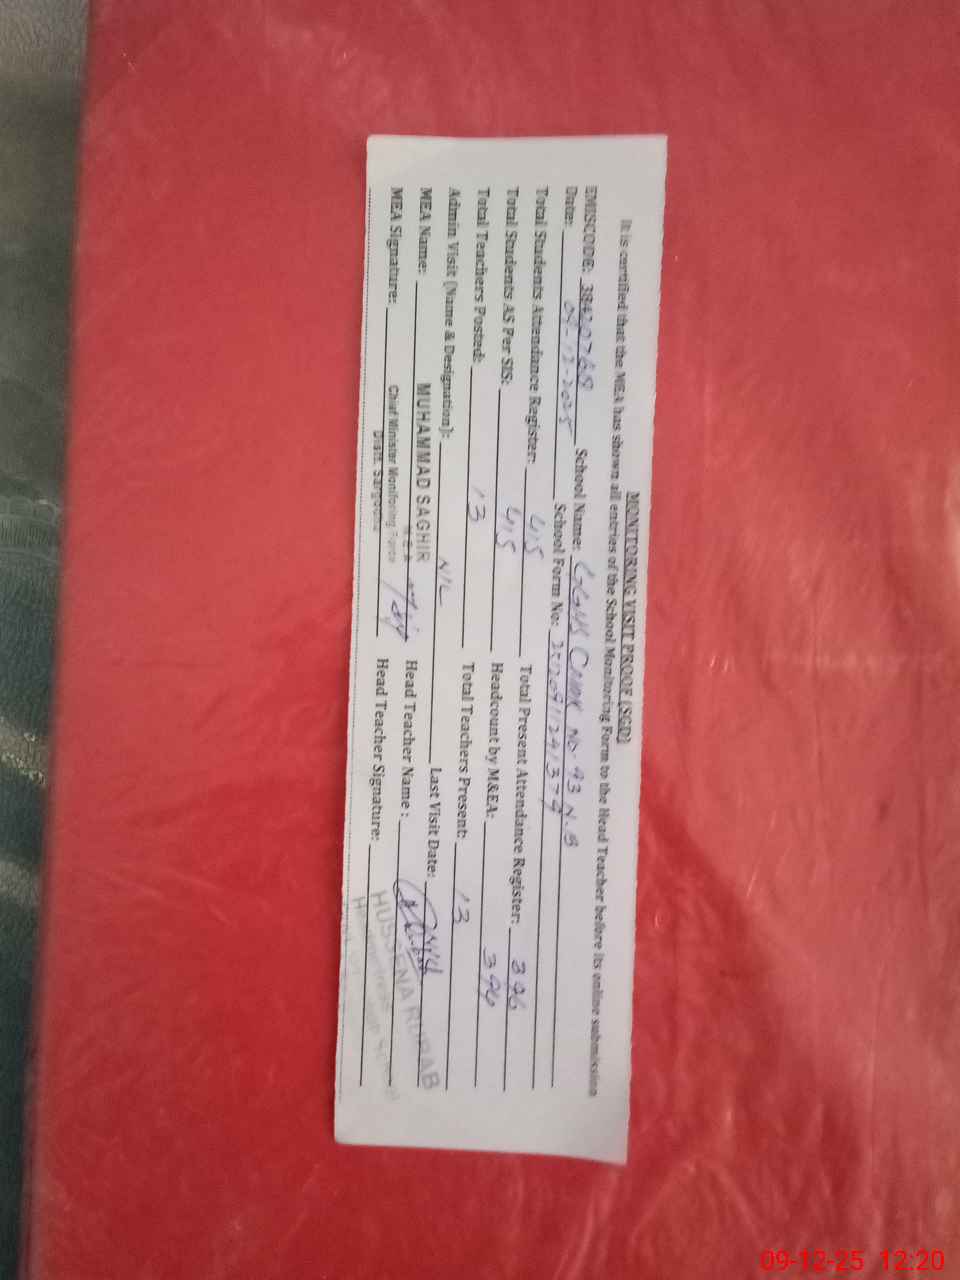 MONITORING VISIT PROOF (SGD)
It is certified that the MEA has shown all entries of the School Monitoring Form to the Head Teacher before its online submission
EMISCODE: 38420768 School Name: GGHS Chak No. 93 N.B
Date: 09-12-2025 School Form No:
Total Students Attendance Register: 415 Total Present Attendance Register: 396
Total Students AS Per SIS: 415 Headcount by M&EA: 394
Total Teachers Posted: 13 Total Teachers Present: 13
Admin Visit (Name & Designation): NIL Last Visit Date:
MEA Name: MUHAMMAD SAGHIR Head Teacher Name:
M.E.A
MEA Signature: Chief Minister Monitoring Force Head Teacher Signature:
Distt. Sargodha
HUSSENA RUBAB
09-12-25 12:20